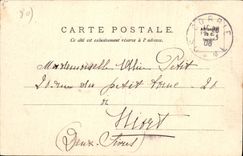 CARTE POSTALE
Ce côté est exclusivement réservé à l'adresse.
Mademoiselle Petit
21 rue du petit banc - 21
à
Niort
(Deux-Sèvres)
08